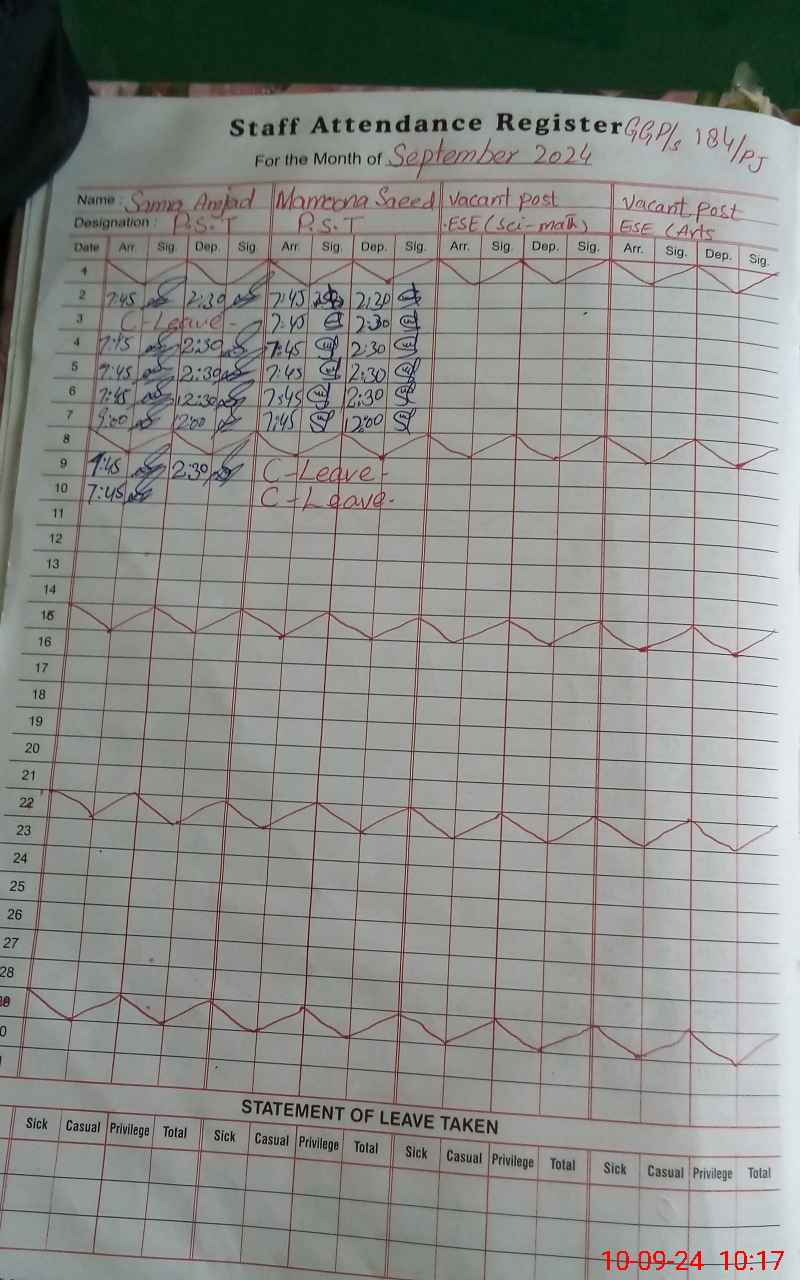 Staff Attendance Register GGP/s 184/PJ
For the Month of September 2024
Name : Samia Amjad Mamoona Saeed Vacant post Vacant post
Designation : P.S.T P.S.T ESE (Sci-math) ESE (Arts
Date Arr. Sig. Dep. Sig. Arr. Sig. Dep. Sig. Arr. Sig. Dep. Sig. Arr. Sig. Dep. Sig.
1
2 7:45 2:30 7:45 2:30
3 C-Leave- 7:45 2:30
4 7:45 2:30 7:45 2:30
5 7:45 2:30 7:45 2:30
6 7:45 12:30 7:45 2:30
7 12:00 7:45 12:00
8
9 7:45 2:30 C-Leave-
10 7:45 C-Leave-
11
12
13
14
15
16
17
18
19
20
21
22
23
24
25
26
27
28
0
STATEMENT OF LEAVE TAKEN
Sick Casual Privilege Total Sick Casual Privilege Total Sick Casual Privilege Total Sick Casual Privilege Total
10-09-24 10:17